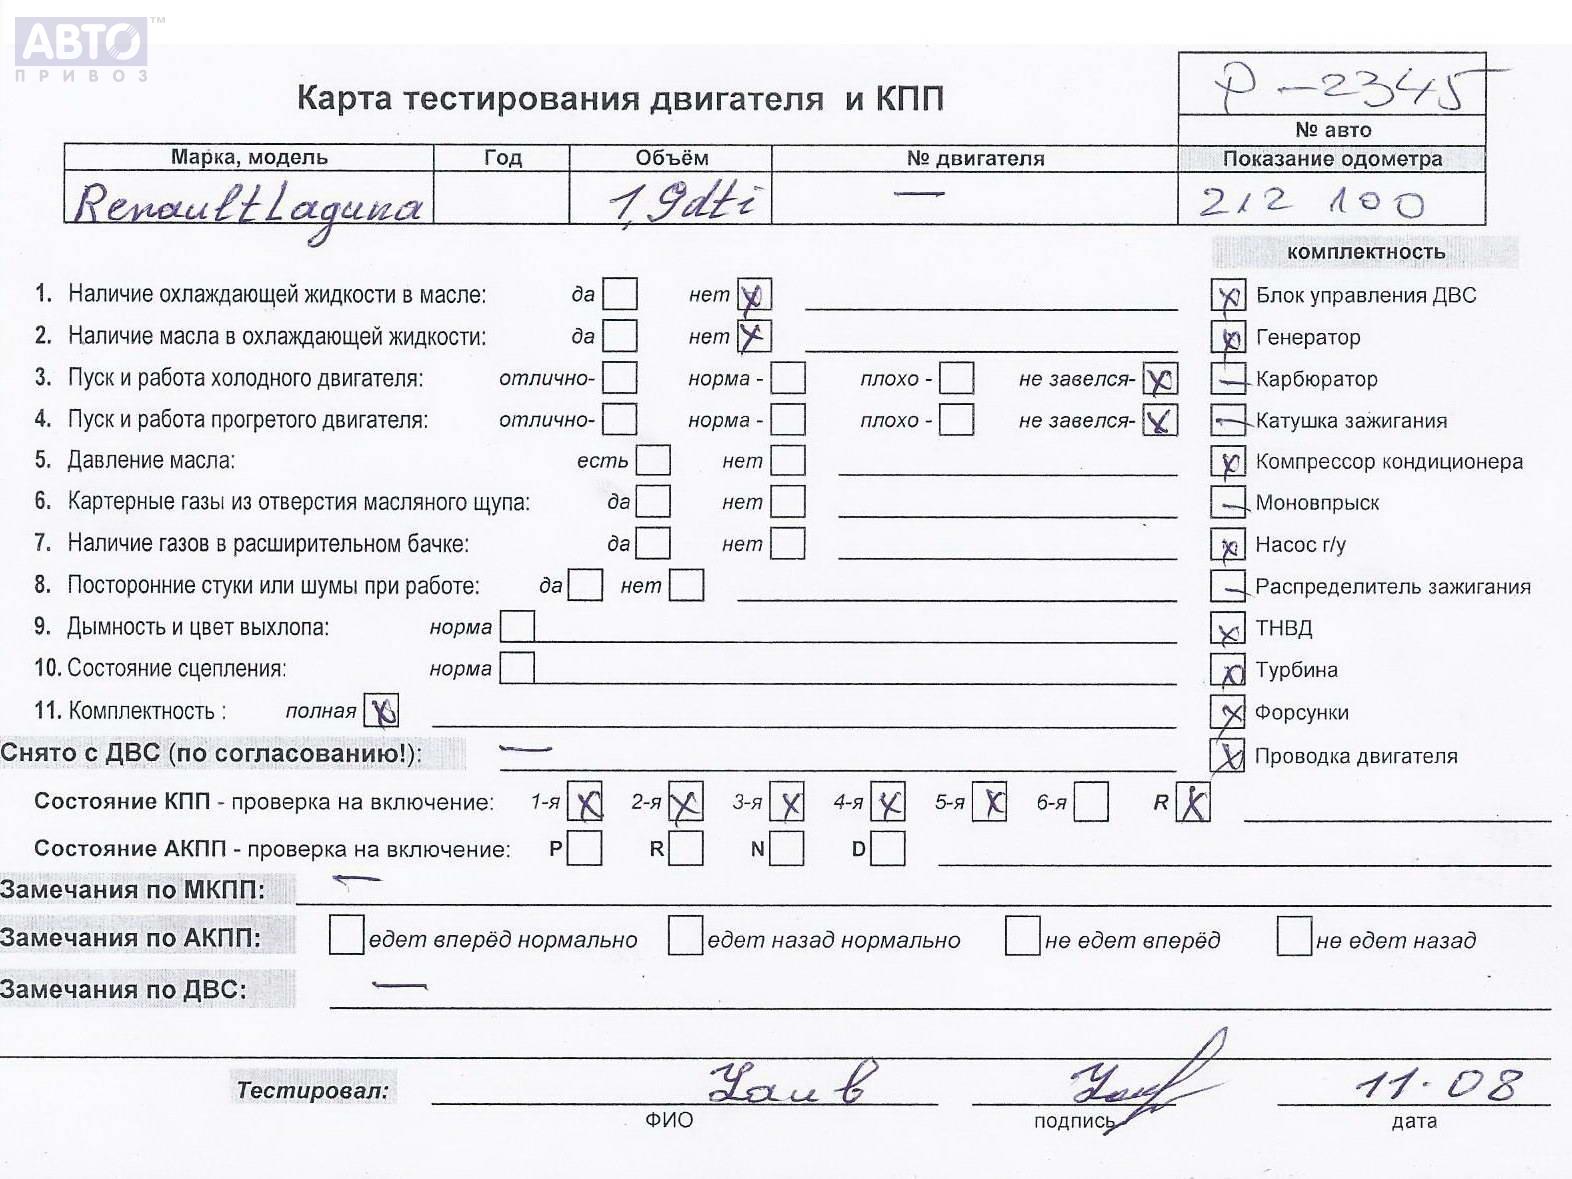 АВТО™
ПРИВОЗ
Карта тестирования двигателя и КПП
Р-2345
№ авто
Марка, модель Год Объём № двигателя Показание одометра
Renault Laguna 1,9dti — 212 100
комплектность
1. Наличие охлаждающей жидкости в масле: да нет x
x Блок управления ДВС
2. Наличие масла в охлаждающей жидкости: да нет x
x Генератор
3. Пуск и работа холодного двигателя: отлично- норма - плохо - не завелся- x
— Карбюратор
4. Пуск и работа прогретого двигателя: отлично- норма - плохо - не завелся- x
— Катушка зажигания
5. Давление масла: есть нет
x Компрессор кондиционера
6. Картерные газы из отверстия масляного щупа: да нет
— Моновпрыск
7. Наличие газов в расширительном бачке: да нет
x Насос г/у
8. Посторонние стуки или шумы при работе: да нет
— Распределитель зажигания
9. Дымность и цвет выхлопа: норма
x ТНВД
10. Состояние сцепления: норма
x Турбина
11. Комплектность : полная x
x Форсунки
Снято с ДВС (по согласованию!): —
x Проводка двигателя
Состояние КПП - проверка на включение: 1-я x 2-я x 3-я x 4-я x 5-я x 6-я R x
Состояние АКПП - проверка на включение: P R N D
Замечания по МКПП: —
Замечания по АКПП: едет вперёд нормально едет назад нормально не едет вперёд не едет назад
Замечания по ДВС: —
Тестировал: 11.08
ФИО подпись дата